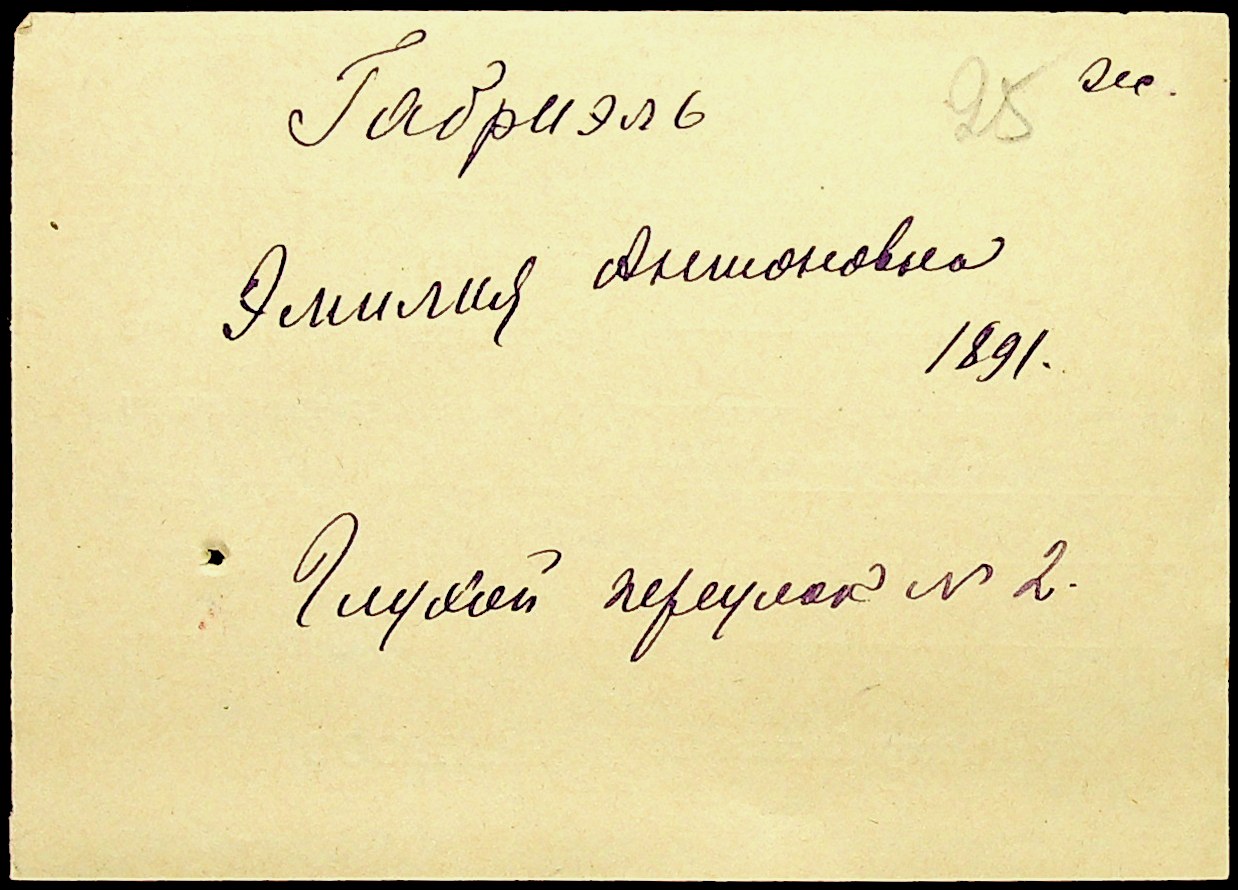 Габриэль 25 ж.
Эмилия Антоновна
1891.
Глухой переулок № 2.